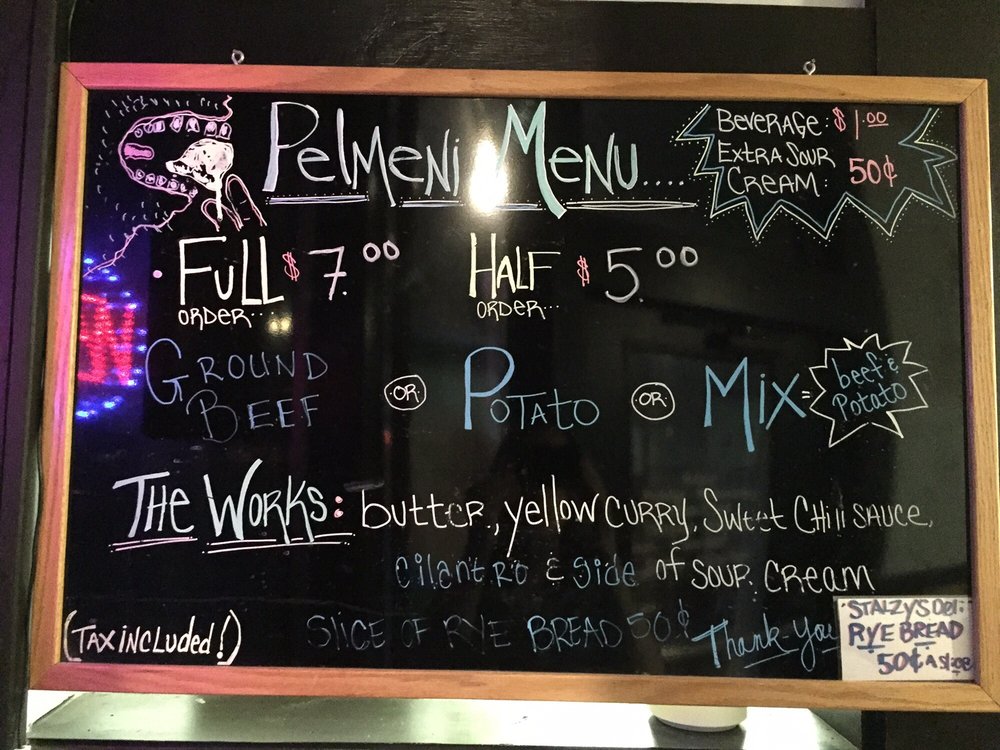 Pelmeni Menu....
Beverage: $1.00
Extra Sour
Cream: 50¢
• Full $7.00
order...
Half $5.00
order...
Ground
Beef
OR
Potato
OR
Mix =
beef &
Potato
The Works: butter, yellow curry, Sweet Chili sauce,
cilantro & side of sour cream
(Tax included!)
Slice of Rye Bread 50¢
Thank-You
Stalzy's Deli
Rye Bread
50¢ a slice